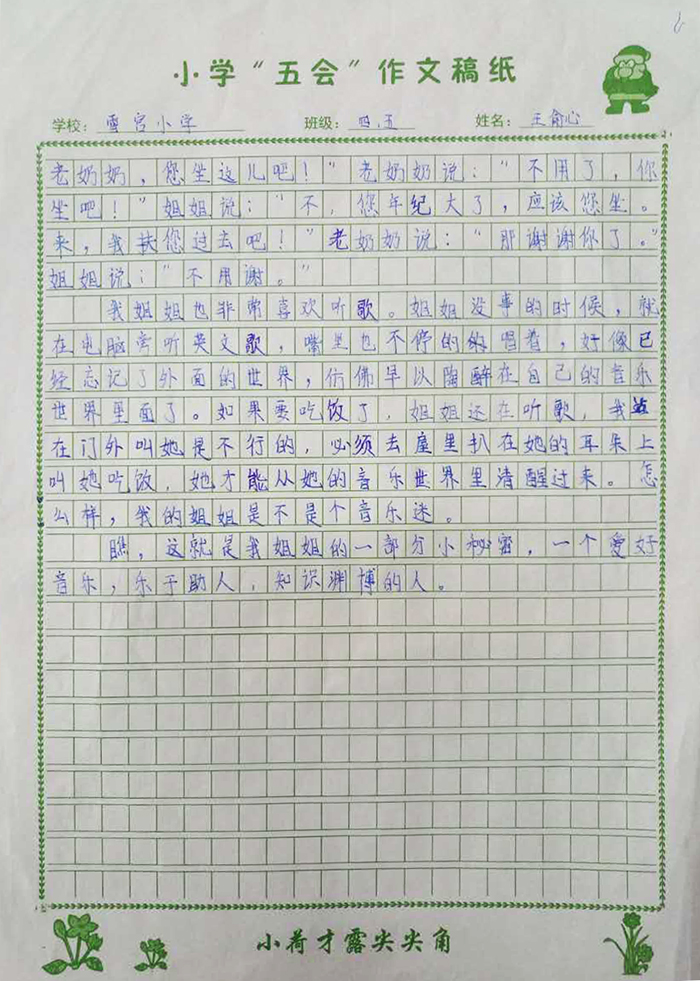 小学“五会”作文稿纸
学校: 雪宫小学 班级: 四.五 姓名: 王俞心
老奶奶，您坐这儿吧！”老奶奶说：“不用了，你
坐吧！”姐姐说：“不，您年纪大了，应该您坐。
来，我扶您过去吧！”老奶奶说：“那谢谢你了。”
姐姐说：“不用谢。”
我姐姐也非常喜欢听歌。姐姐没事的时候，就
在电脑旁听英文歌，嘴里也不停的唱着，好像已
经忘记了外面的世界，仿佛早以陶醉在自己的音乐
世界里面了。如果要吃饭了，姐姐还在听歌，我站
在门外叫她是不行的，必须去屋里扒在她的耳朵上
叫她吃饭，她才能从她的音乐世界里清醒过来。怎
么样，我的姐姐是不是个音乐迷。
瞧，这就是我姐姐的一部分小秘密，一个爱好
音乐，乐于助人，知识渊博的人。
小荷才露尖尖角